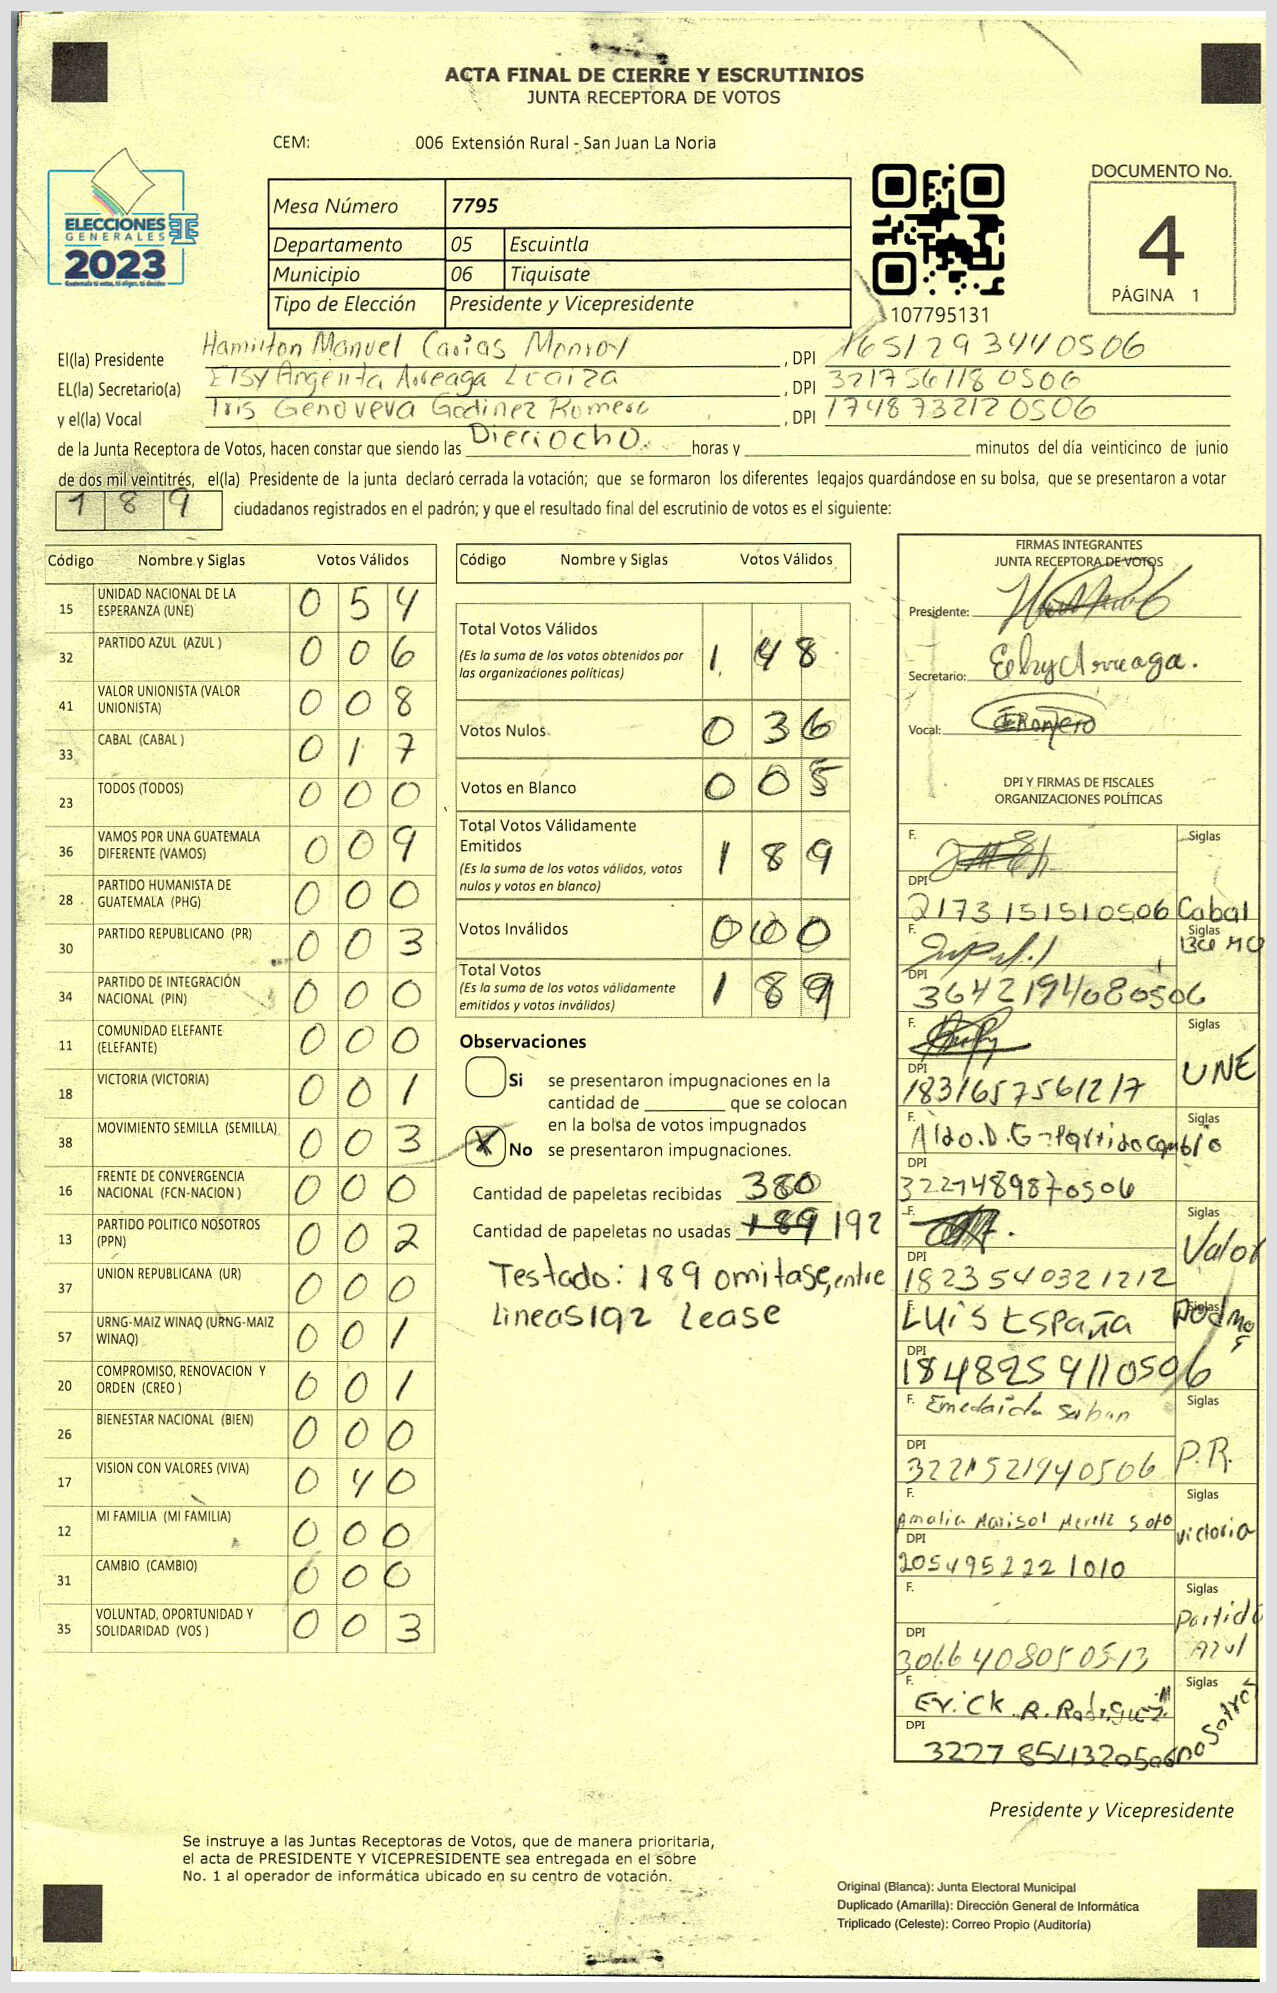 ACTA FINAL DE CIERRE Y ESCRUTINIOS
JUNTA RECEPTORA DE VOTOS
CEM: 006 Extensión Rural - San Juan La Noria
ELECCIONES
GENERALES
2023
Guatemala tú votas, tú eliges, tú decides
Mesa Número 7795
Departamento 05 Escuintla
Municipio 06 Tiquisate
Tipo de Elección Presidente y Vicepresidente
107795131
DOCUMENTO No.
4
PÁGINA 1
El(la) Presidente Hamilton Manuel Casias Monroy, DPI 1651293440506
EL(la) Secretario(a) Elsy Argenta Arreaga Loaiza, DPI 3217561180506
y el(la) Vocal Iris Genoveva Godinez Romero, DPI 1748732120506
de la Junta Receptora de Votos, hacen constar que siendo las Dieciocho horas y minutos del día veinticinco de junio
de dos mil veintitrés, el(la) Presidente de la junta declaró cerrada la votación; que se formaron los diferentes legajos guardándose en su bolsa, que se presentaron a votar
189 ciudadanos registrados en el padrón; y que el resultado final del escrutinio de votos es el siguiente:
Código Nombre y Siglas Votos Válidos
15 UNIDAD NACIONAL DE LA ESPERANZA (UNE) 0 5 4
32 PARTIDO AZUL (AZUL ) 0 0 6
41 VALOR UNIONISTA (VALOR UNIONISTA) 0 0 8
33 CABAL (CABAL ) 0 1 7
23 TODOS (TODOS) 0 0 0
36 VAMOS POR UNA GUATEMALA DIFERENTE (VAMOS) 0 0 9
28 PARTIDO HUMANISTA DE GUATEMALA (PHG) 0 0 0
30 PARTIDO REPUBLICANO (PR) 0 0 3
34 PARTIDO DE INTEGRACIÓN NACIONAL (PIN) 0 0 0
11 COMUNIDAD ELEFANTE (ELEFANTE) 0 0 0
18 VICTORIA (VICTORIA) 0 0 1
38 MOVIMIENTO SEMILLA (SEMILLA) 0 0 3
16 FRENTE DE CONVERGENCIA NACIONAL (FCN-NACION ) 0 0 0
13 PARTIDO POLITICO NOSOTROS (PPN) 0 0 2
37 UNION REPUBLICANA (UR) 0 0 0
57 URNG-MAIZ WINAQ (URNG-MAIZ WINAQ) 0 0 1
20 COMPROMISO, RENOVACION Y ORDEN (CREO ) 0 0 1
26 BIENESTAR NACIONAL (BIEN) 0 0 0
17 VISION CON VALORES (VIVA) 0 4 0
12 MI FAMILIA (MI FAMILIA) 0 0 0
31 CAMBIO (CAMBIO) 0 0 0
35 VOLUNTAD, OPORTUNIDAD Y SOLIDARIDAD (VOS ) 0 0 3
Código Nombre y Siglas Votos Válidos
Total Votos Válidos 1 48
(Es la suma de los votos obtenidos por
las organizaciones políticas)
Votos Nulos 0 36
Votos en Blanco 0 0 5
Total Votos Válidamente
Emitidos 1 8 9
(Es la suma de los votos válidos, votos
nulos y votos en blanco)
Votos Inválidos 0 0 0
Total Votos 1 8 9
(Es la suma de los votos válidamente
emitidos y votos inválidos)
Observaciones
Si se presentaron impugnaciones en la
cantidad de que se colocan
en la bolsa de votos impugnados
X No se presentaron impugnaciones.
Cantidad de papeletas recibidas 380
Cantidad de papeletas no usadas 189 192
Testado: 189 omitase, entre
lineas 192 Lease
FIRMAS INTEGRANTES
JUNTA RECEPTORA DE VOTOS
Presidente:
Secretario: Elsy Arreaga.
Vocal:
DPI Y FIRMAS DE FISCALES
ORGANIZACIONES POLÍTICAS
F. Siglas
DPI 2173151510506 Cabal
F. Siglas
DPI 3642194080506
F. Siglas
DPI 1831657561217 UNE
F. Aldo.D.G-Partido Cambio Siglas
DPI 3227489870506
F. Siglas Valor
DPI 1823540321212
F. LUIS ESPAÑA Siglas Podemos
DPI 1848259110506
F. Emedaida Saban Siglas
DPI 3221521940506 P.R.
F. Amalia Marisol Merlz Soto Siglas
DPI 2054952221010 victoria
F. Siglas Partido Azul
DPI 3066408050513
F. Erick R. Rodriguez Siglas nosotros
DPI 3227854320506
Presidente y Vicepresidente
Se instruye a las Juntas Receptoras de Votos, que de manera prioritaria,
el acta de PRESIDENTE Y VICEPRESIDENTE sea entregada en el sobre
No. 1 al operador de informática ubicado en su centro de votación.
Original (Blanca): Junta Electoral Municipal
Duplicado (Amarilla): Dirección General de Informática
Triplicado (Celeste): Correo Propio (Auditoría)